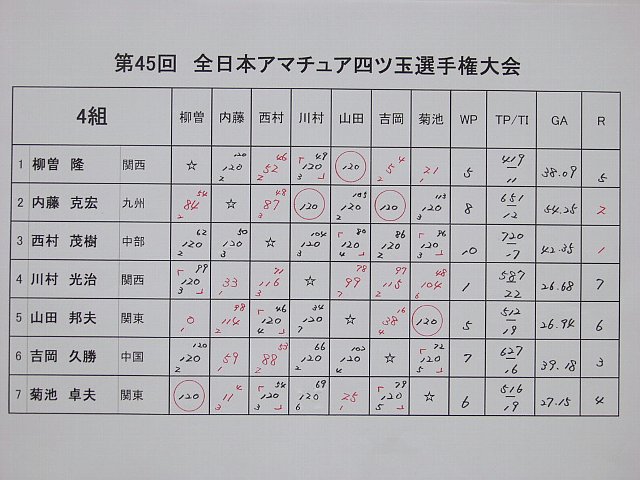 第45回 全日本アマチュア四ツ玉選手権大会
4組 柳曽 内藤 西村 川村 山田 吉岡 菊池 WP TP/TI GA R
1 柳曽 隆 関西 ☆ 120 120 2 52 46 2 120 49 3 120 5 4 2 21 1 5 419/11 38.09 5
2 内藤 克宏 九州 84 54 2 ☆ 87 48 3 120 120 105 2 120 120 113 3 8 651/12 54.25 2
3 西村 茂樹 中部 120 62 2 120 50 3 ☆ 120 104 3 120 80 4 120 86 2 120 96 3 10 720/17 42.35 1
4 川村 光治 関西 120 99 3 33 1 116 71 3 ☆ 99 78 7 115 97 2 104 48 6 1 587/22 26.68 7
5 山田 邦夫 関東 0 1 114 98 2 120 46 4 120 34 7 ☆ 38 16 4 120 5 512/19 26.94 6
6 吉岡 久勝 中国 120 120 2 59 1 88 53 2 120 66 2 120 102 4 ☆ 120 72 5 7 627/16 39.18 3
7 菊池 卓夫 関東 120 11 4 3 120 54 3 120 69 6 25 1 120 79 5 ☆ 6 516/19 27.15 4